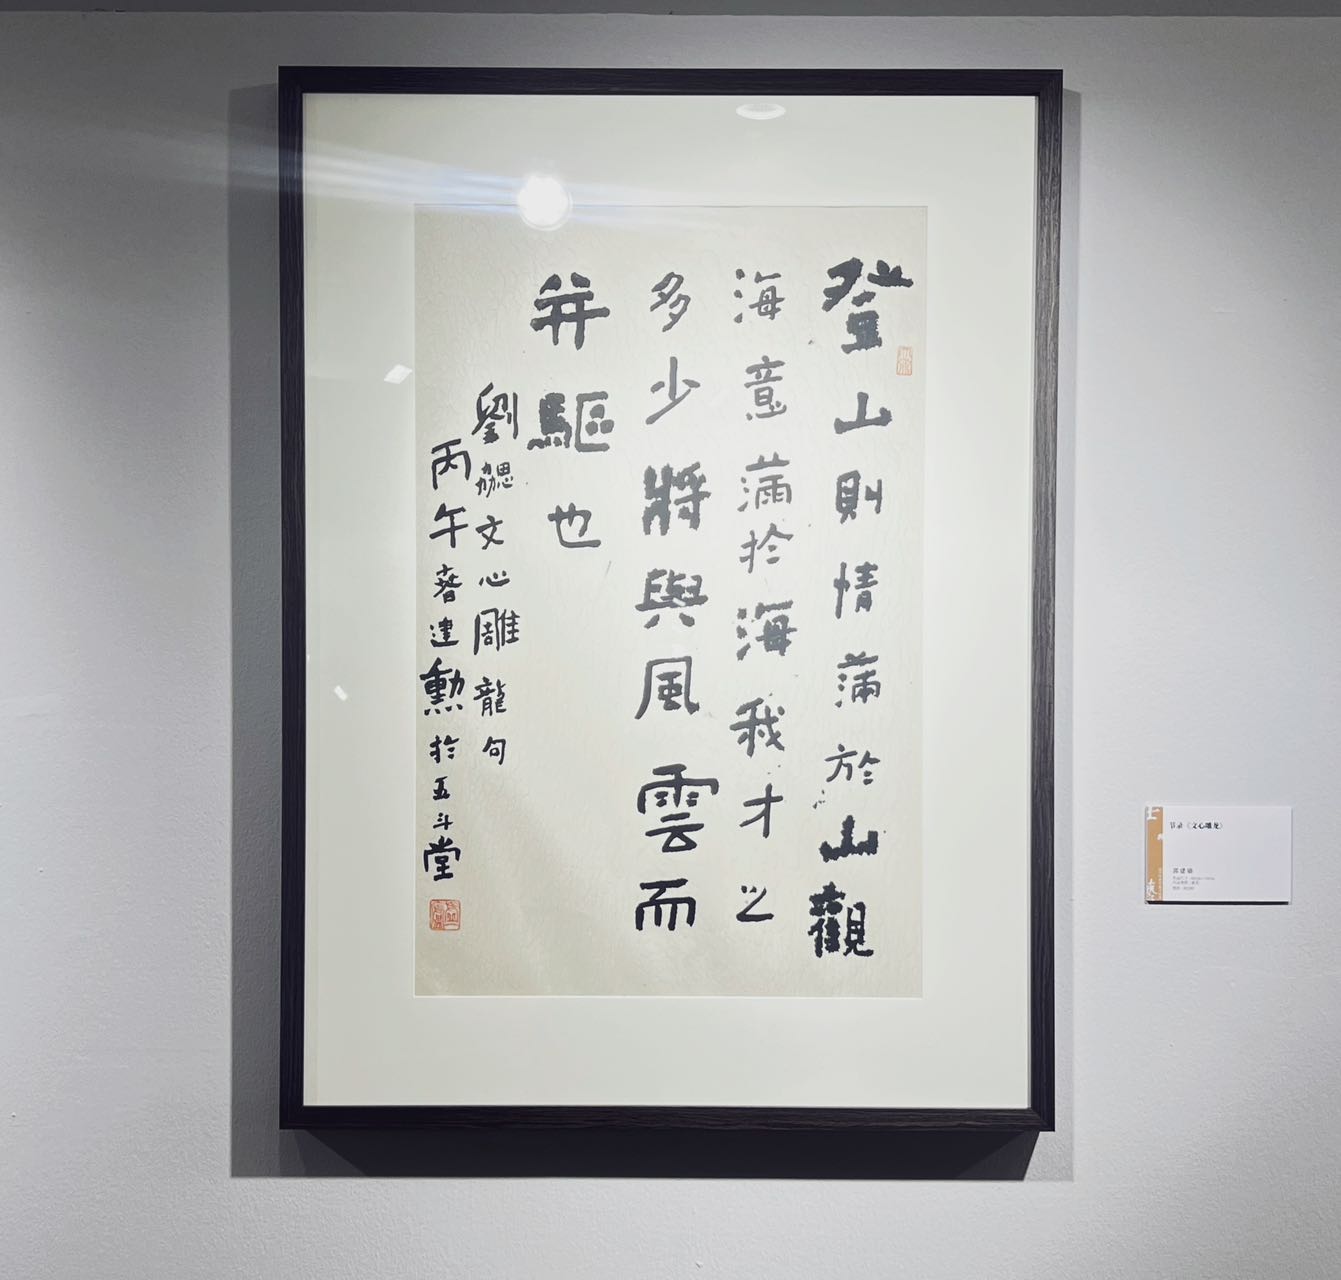 登山則情滿於山觀
海意滿於海我才之
多少將與風雲而
并驅也
劉勰文心雕龍句
丙午春建勳於五斗堂
节录《文心雕龙》